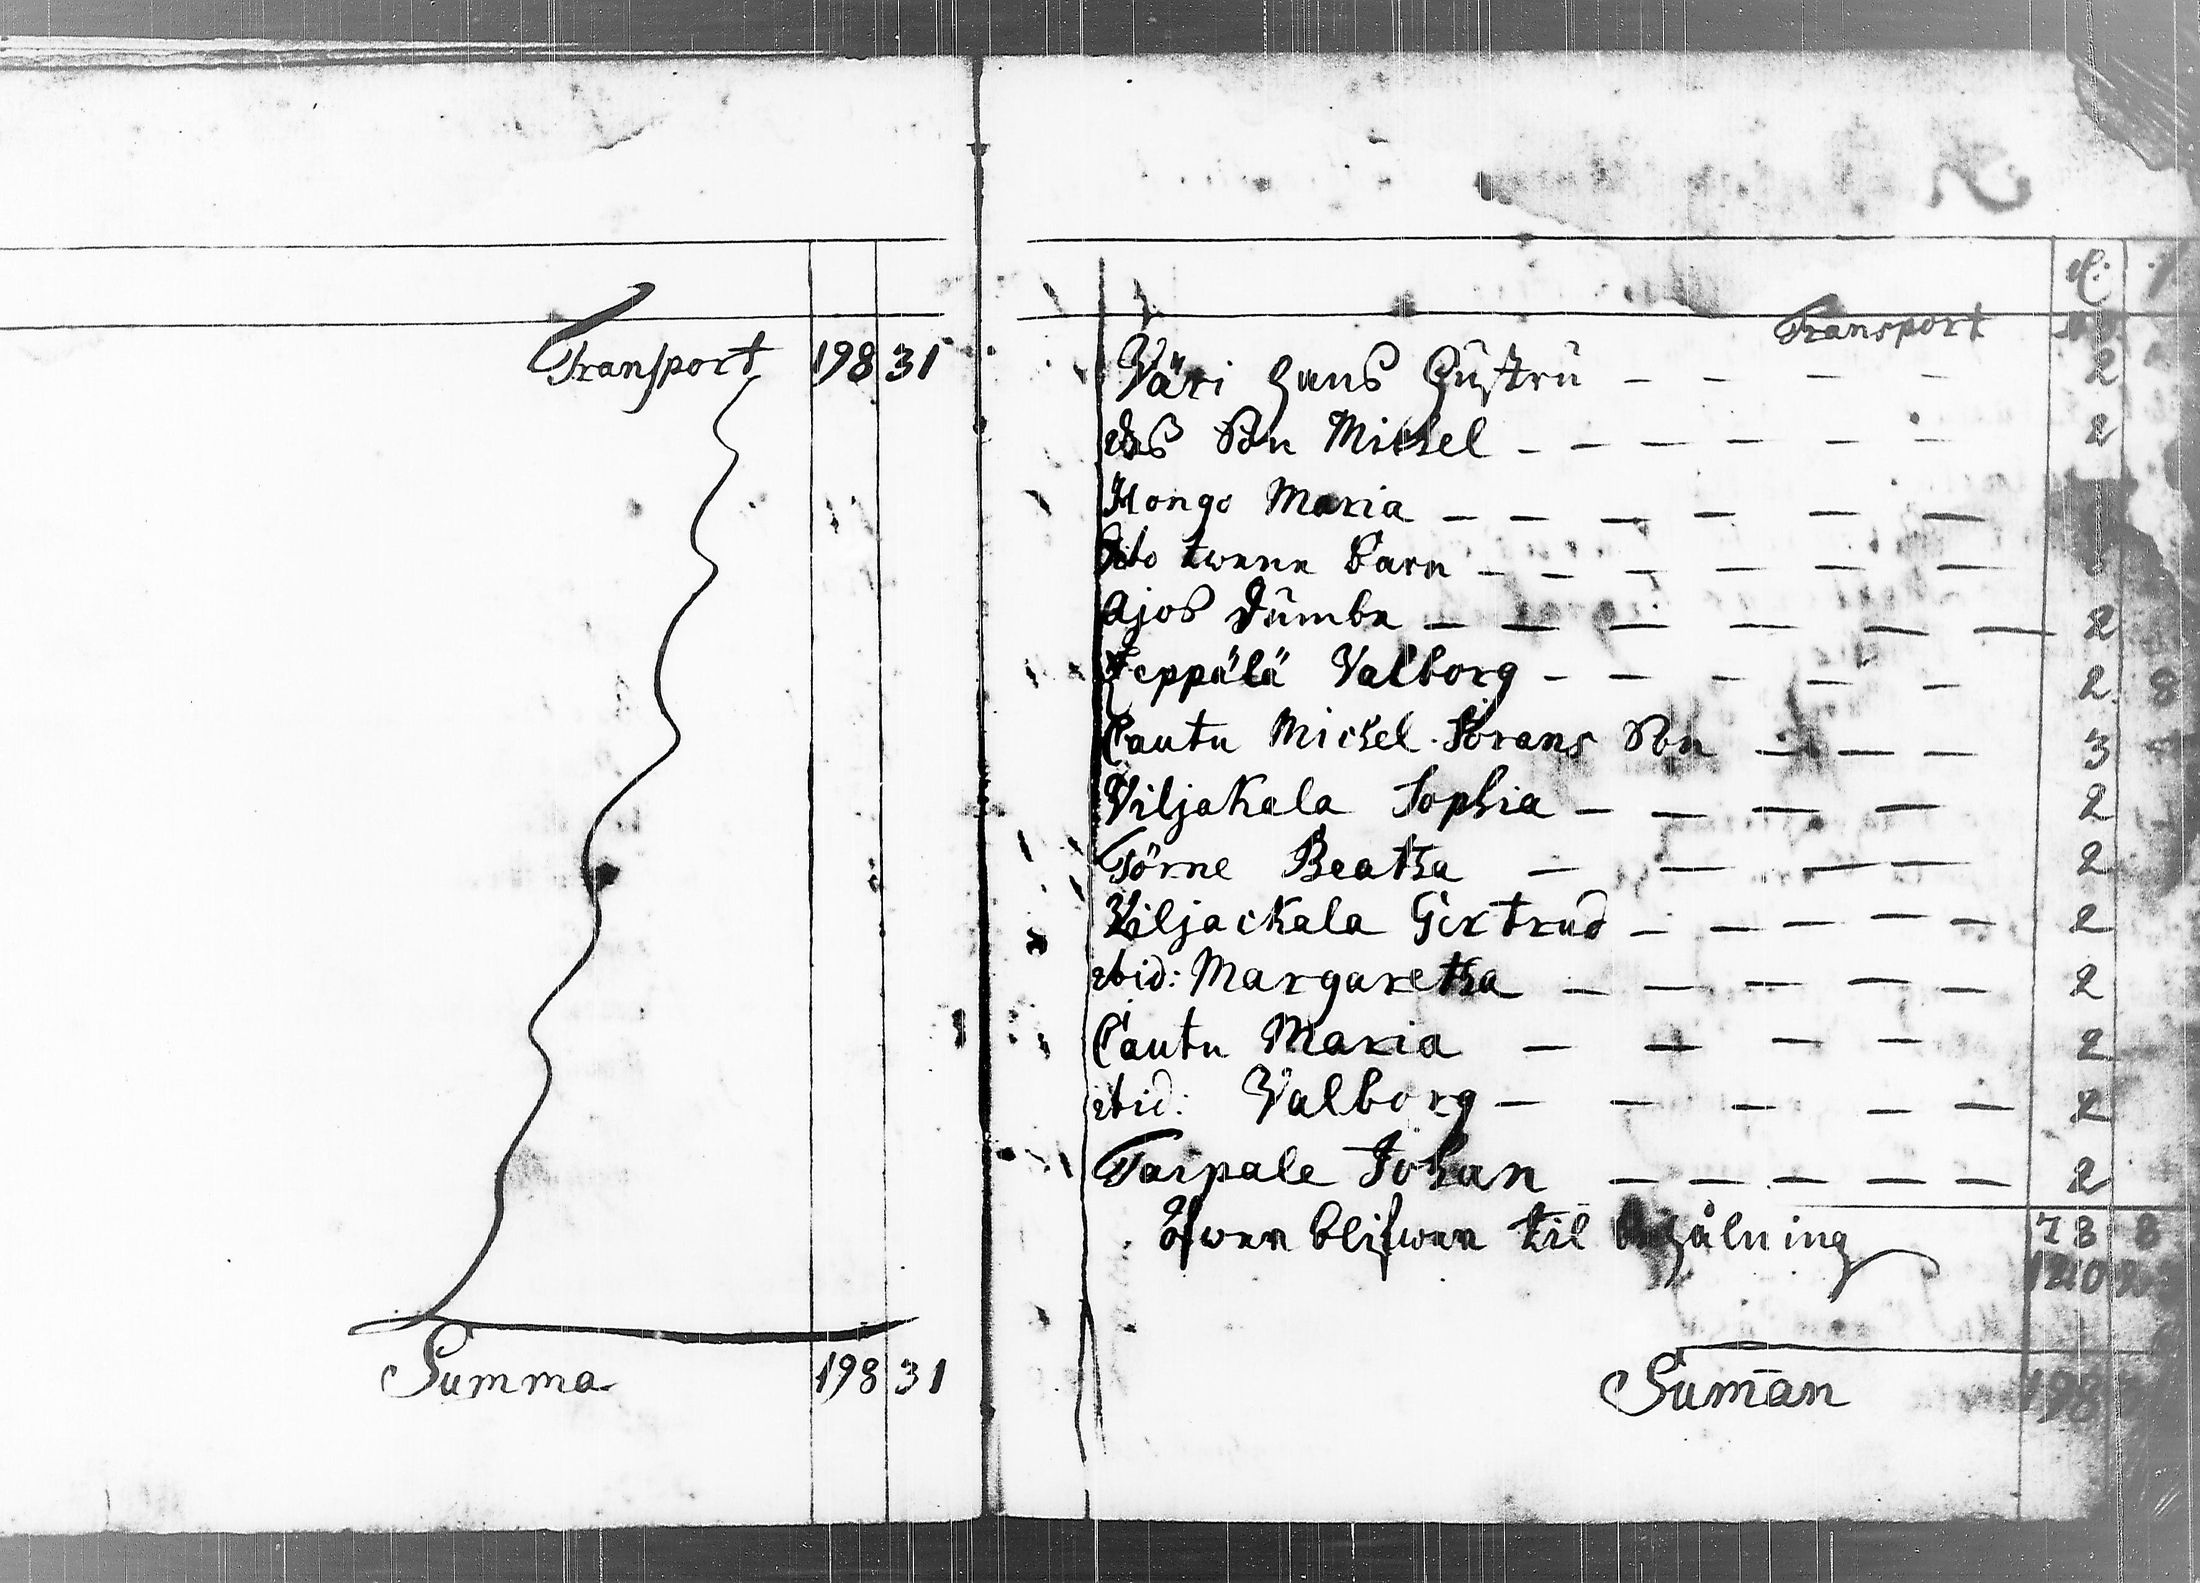 Transport 198 31
Summa 198 31
Transport
Väri Hans Hustru 2
dess Son Michel 2
Hongo Maria
dito twenne Barn
Ajos Dumbe 2
Seppälä Valborg 2 8
Lautu Michel Görans Son 3
Viljakala Sophia 2
Törne Beatha 2
Viljackala Gertrud 2
ibid: Margaretha 2
Lautu Maria 2
ibid: Valborg 2
Taipale Johan 2
öfwer blifwer til 73 8
Sum̄an 198